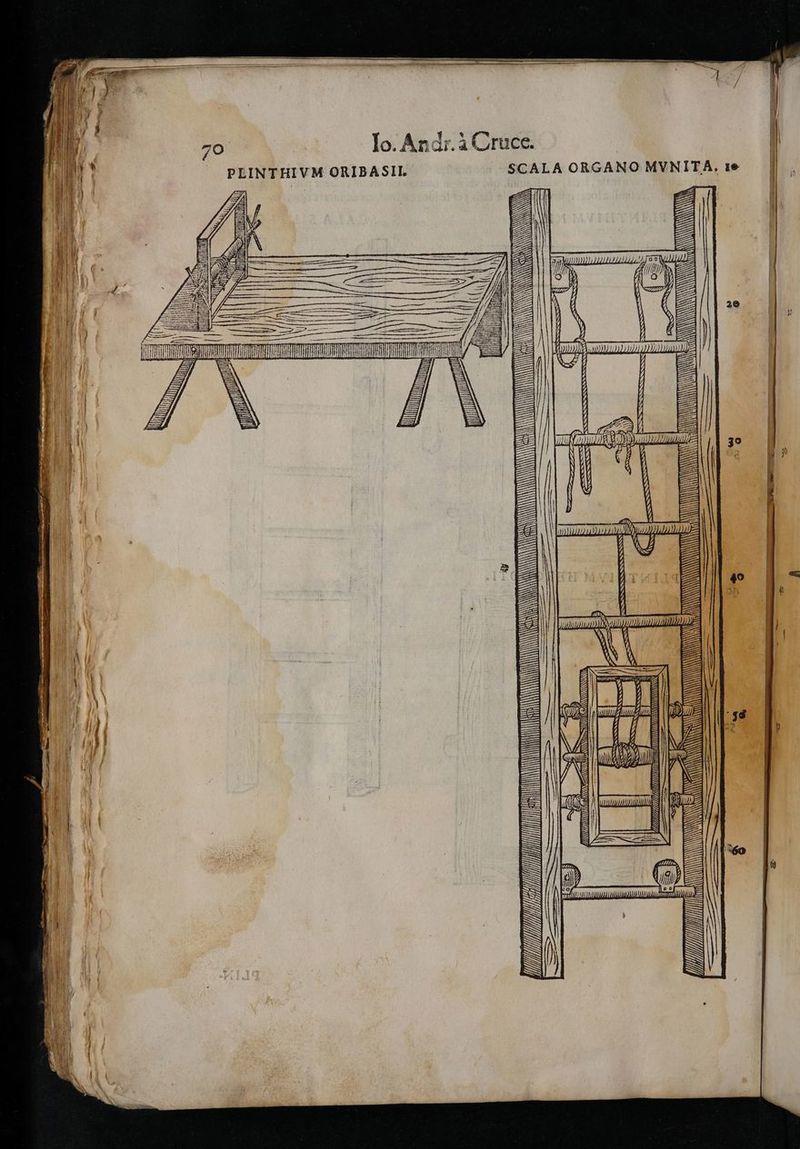 70 Io. Andr. à Cruce.
PLINTHIVM ORIBASII. SCALA ORGANO MVNITA. 10
20
30
40
50
60